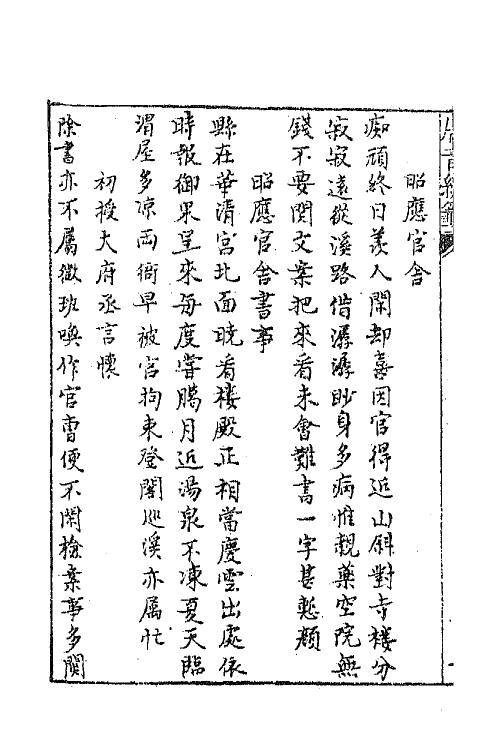 昭應官舍
痴頑終日羨人閑却喜因官得近山斜對寺樓分
寂寂遠從溪路借潺潺眇身多病惟親藥空院無
錢不要関文案把來看未會雖書一字甚慙顔
昭應官舍書事
縣在華清宮北面曉看樓殿正相當慶雲出處依
時報御果呈來每度嘗臘月近湯泉不凍夏天臨
渭屋多凉兩衙早被官拘束登閣巡溪亦属忙
初授大府丞言懷
除書亦不属微班喚作官曺便不閑檢案事多関